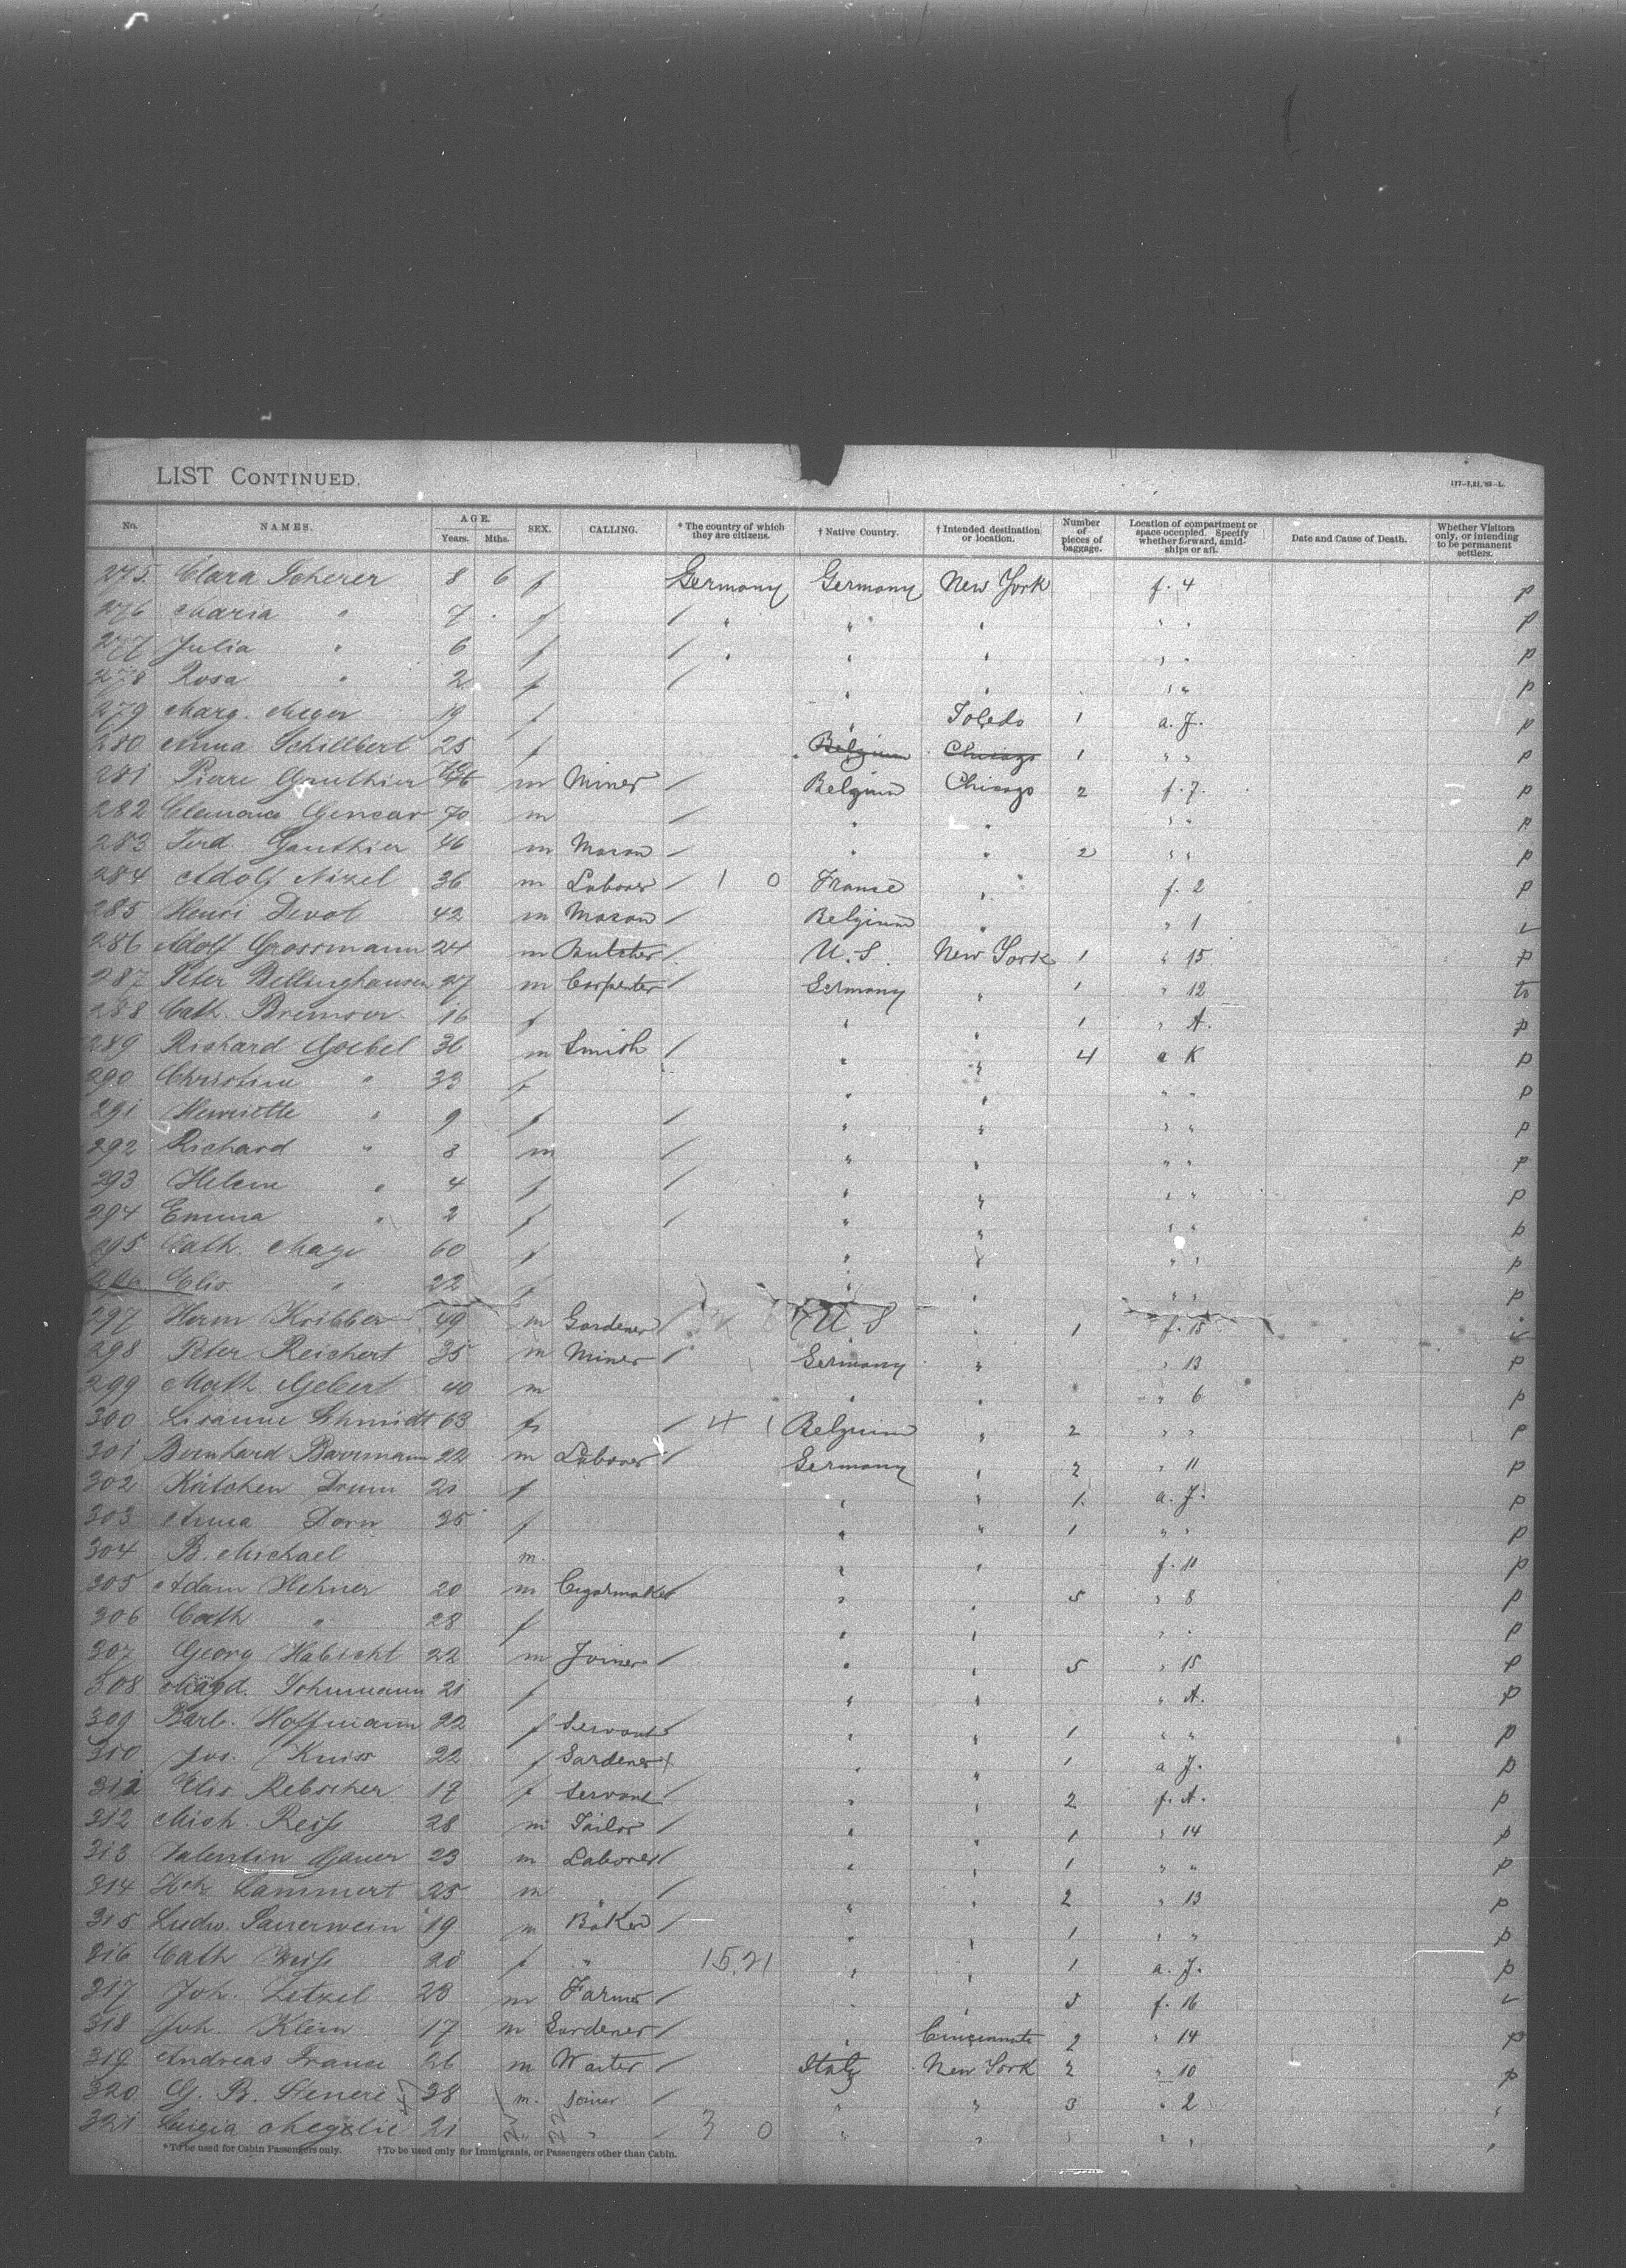 LIST CONTINUED.
177-7,21,'93-L.
No. NAMES. AGE. Years. Mths. SEX. CALLING. * The country of which they are citizens. † Native Country. † Intended destination or location. Number of pieces of baggage. Location of compartment or space occupied. Specify whether forward, amidships or aft. Date and Cause of Death. Whether Visitors only, or intending to be permanent settlers.
275 Clara Scherer 8 6 f Germany Germany New York f. 4 p
276 Maria " 7 f / " " " " " p
277 Julia " 6 f / " " " " " p
278 Rosa " 2 f / " " " " p
279 Marg. Meyer 19 f " Toledo 1 a. J. p
280 Anna Schillbert 25 f Belgium Chicago 1 " " p
281 Pierre Gauthier m Miner / Belgium Chicago 2 f. 7. p
282 70 m / " " " " p
283 Ferd. Gauthier 46 m Mason / " " 2 " " p
284 Adolf Nizel 36 m Laborer / 1 0 France " f. 2 p
285 Henri Devot 42 m Mason / Belgium " " 1
286 Adolf Grossmann 24 m Butcher / U.S. New York 1 " 15 p
287 Peter Bellinghausen 27 m Carpenter / Germany " 1 " 12
288 Cath. Bremser 16 f " " 1 " A. p
289 Richard Goebel 36 m Smith / " " 4 a K p
290 Christine " 33 f " " " " p
291 Henriette " 9 f / " " " " p
292 Richard " 8 m / " " " " p
293 Helene " 4 f / " " " " p
294 Emma " 2 f / " " " " p
295 Cath. Mage 60 f " " " " p
296 Elis. " 22 f " " " " p
297 Herm Kribber 49 m Gardener / U S " 1 f. 15
298 Peter Reichert 35 m Miner / Germany " " 13 p
299 Math. Gebert 40 m " " " 6 p
300 Schmidt 63 f / 4 1 Belgium " 2 " " p
301 Bernhard 22 m Laborer / Germany " 2 " 11 p
302 Kätchen Drum 21 f " " 1 a. J. p
303 Anna Dorn 25 f " " 1 " " p
304 B. Michael m. " " f. 11 p
305 Adam Hehner 20 m Cigarmaker " " 5 " 8 p
306 Cath " 28 f " " " " p
307 Georg Habicht 22 m Joiner / " " 5 " 15 p
308 Magd. Schumann 21 f " " " A. p
309 Barb. Hoffmann 22 f Servant / " " 1 " " p
310 Jos. 22 f Gardener " " 1 a J. p
311 Elis. Rebscher 17 f Servant / " " 2 f. A. p
312 Mich. Reiß 28 m Tailor / " " 1 " 14 p
313 Valentin 23 m Laborer / " " 1 " " p
314 Lammert 25 m " / " " 2 " 13 p
315 Ludw. Sauerwein 19 m Baker / " " 1 " " p
316 Cath 20 f " 15.21 " " 1 a. J. p
317 Joh. Letzel 23 m Farmer / " " f. 16
318 Joh. Klein 17 m Gardener / " Cincinnati 2 " 14 p
319 Andreas 26 m Waiter / Italy New York 2 " 10 p
320 G. B. 38 m. Joiner / " " 3 " 2
321 Luigia 21 " " / 3 0 " " " "
*To be used for Cabin Passengers only. †To be used only for Immigrants, or Passengers other than Cabin.